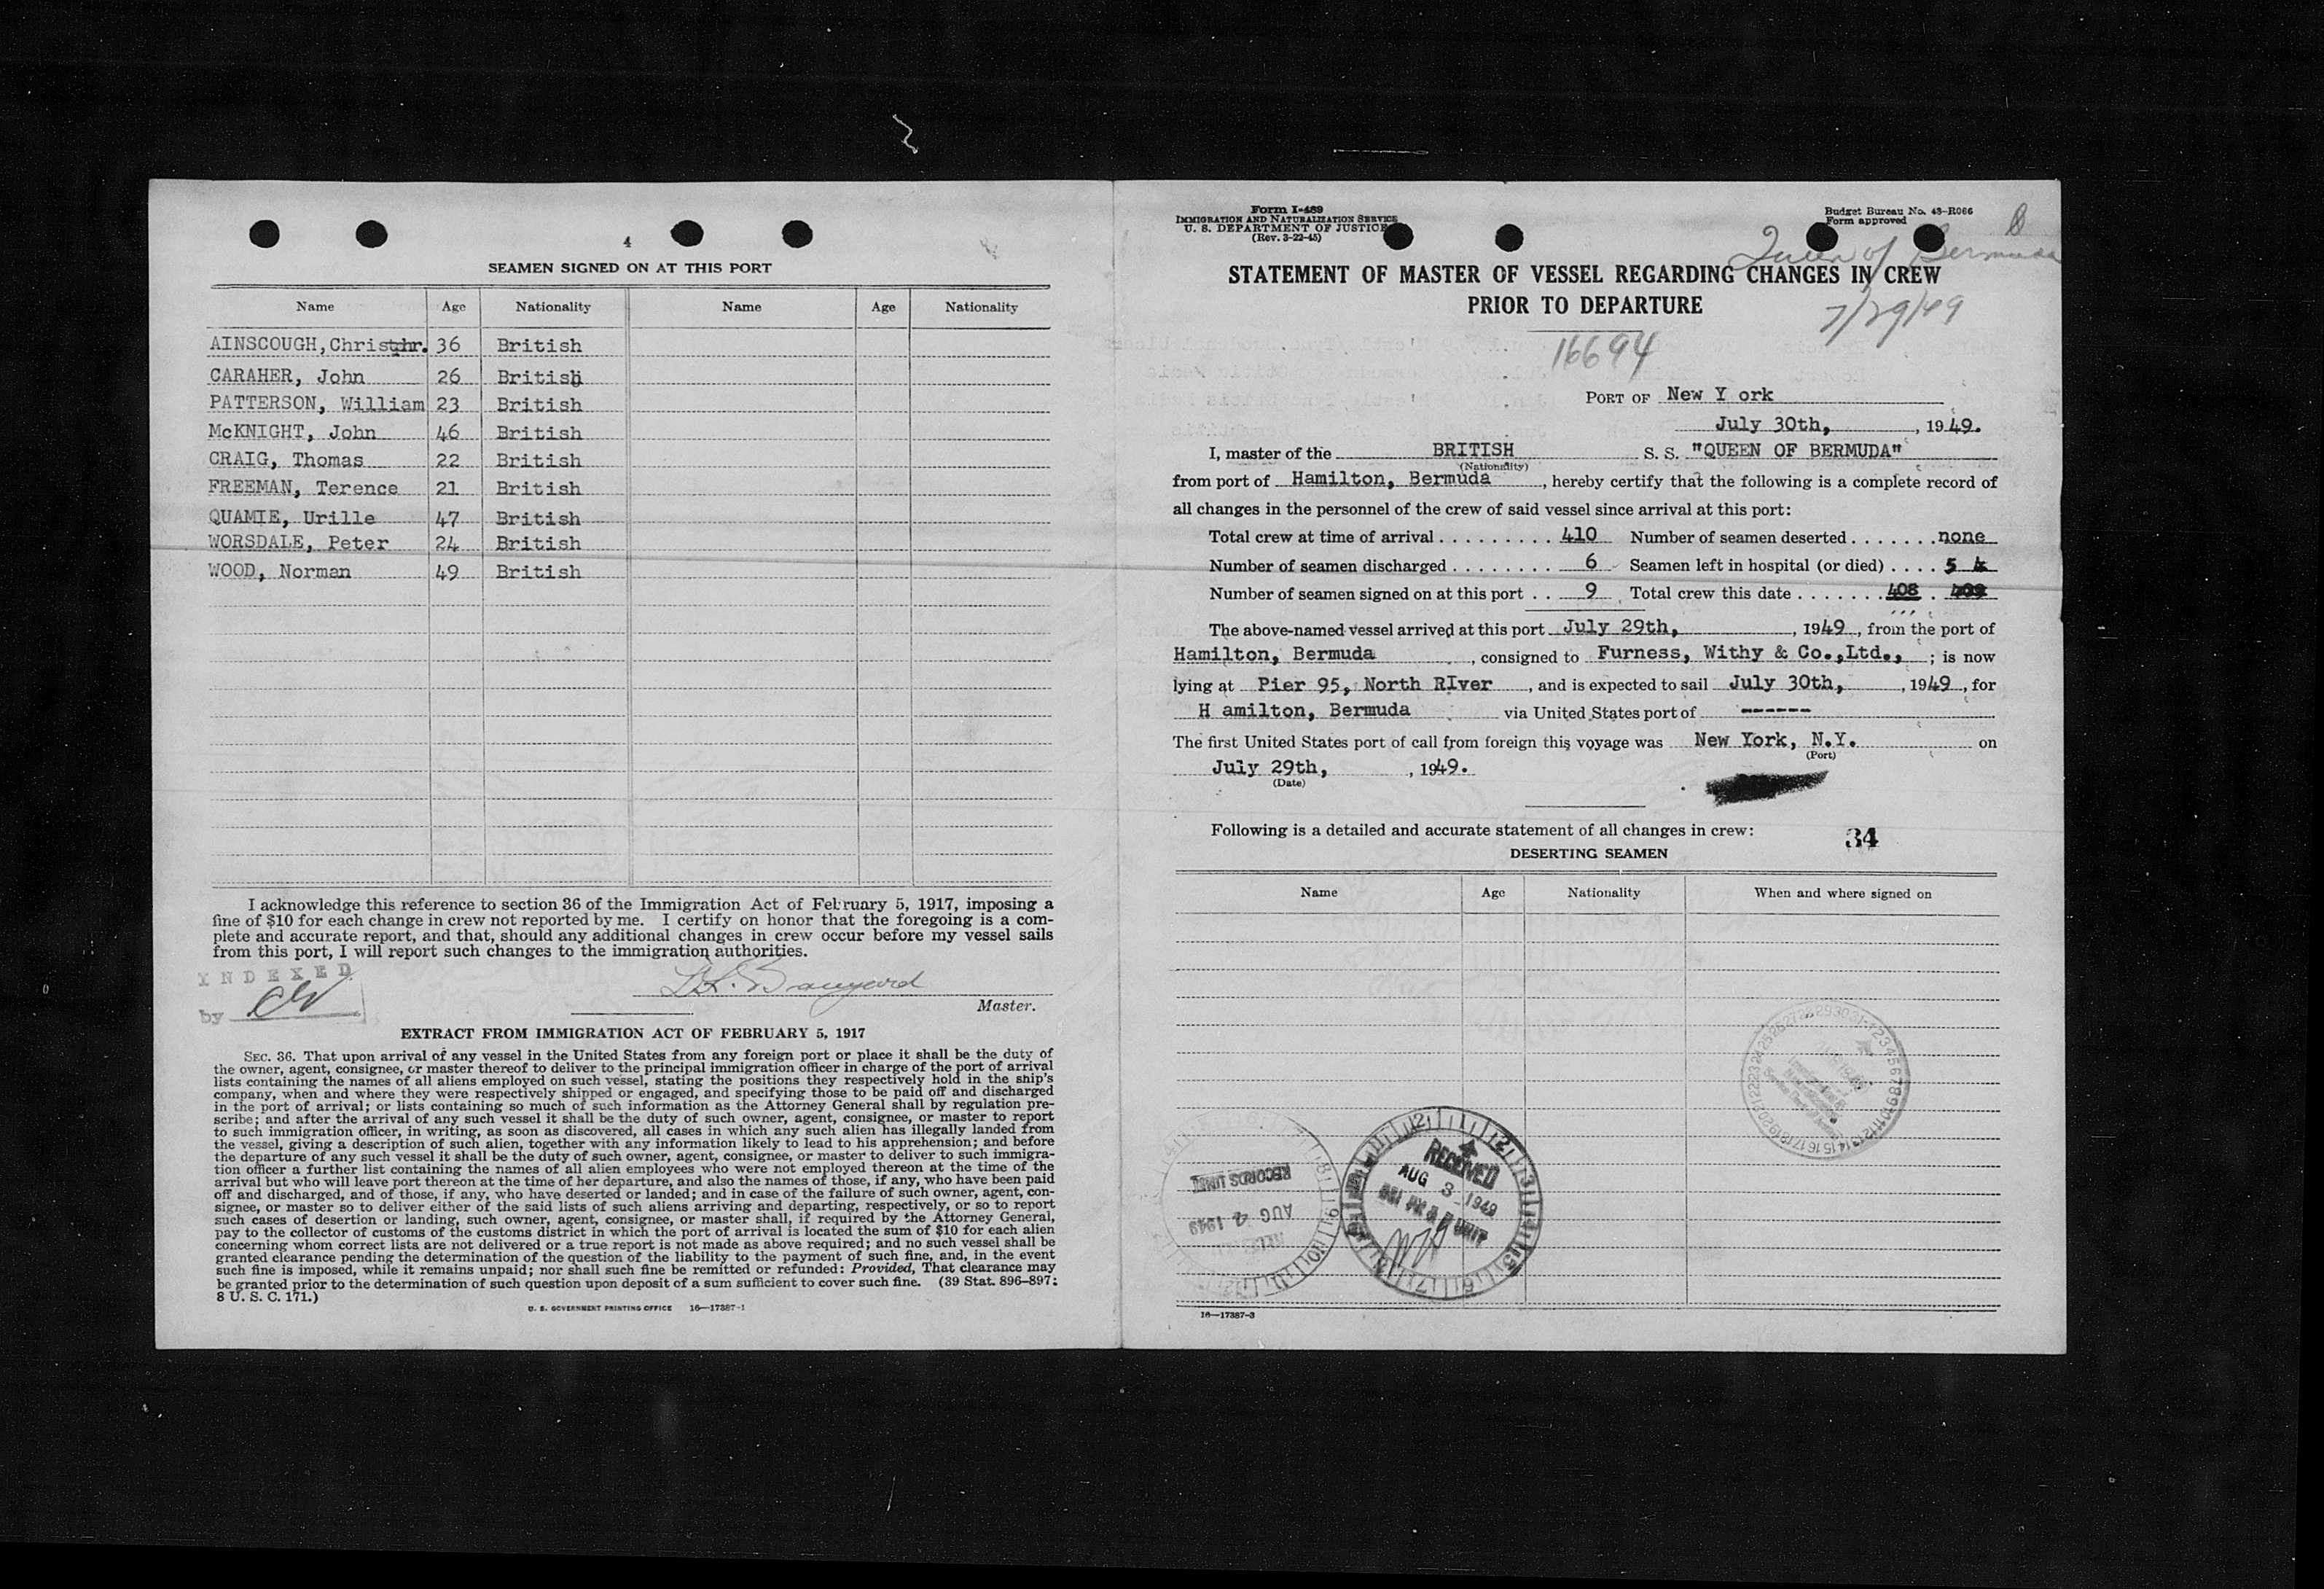 4
SEAMEN SIGNED ON AT THIS PORT
Name Age Nationality Name Age Nationality
AINSCOUGH,Christhr. 36 British
CARAHER, John 26 British
PATTERSON, William 23 British
McKNIGHT, John 46 British
CRAIG, Thomas 22 British
FREEMAN, Terence 21 British
QUAMIE, Urille 47 British
WORSDALE, Peter 24 British
WOOD, Norman 49 British
I acknowledge this reference to section 36 of the Immigration Act of February 5, 1917, imposing a
fine of $10 for each change in crew not reported by me. I certify on honor that the foregoing is a com-
plete and accurate report, and that, should any additional changes in crew occur before my vessel sails
from this port, I will report such changes to the immigration authorities.
INDEXED
by
Master.
EXTRACT FROM IMMIGRATION ACT OF FEBRUARY 5, 1917
SEC. 36. That upon arrival of any vessel in the United States from any foreign port or place it shall be the duty of
the owner, agent, consignee, or master thereof to deliver to the principal immigration officer in charge of the port of arrival
lists containing the names of all aliens employed on such vessel, stating the positions they respectively hold in the ship's
company, when and where they were respectively shipped or engaged, and specifying those to be paid off and discharged
in the port of arrival; or lists containing so much of such information as the Attorney General shall by regulation pre-
scribe; and after the arrival of any such vessel it shall be the duty of such owner, agent, consignee, or master to report
to such immigration officer, in writing, as soon as discovered, all cases in which any such alien has illegally landed from
the vessel, giving a description of such alien, together with any information likely to lead to his apprehension; and before
the departure of any such vessel it shall be the duty of such owner, agent, consignee, or master to deliver to such immigra-
tion officer a further list containing the names of all alien employees who were not employed thereon at the time of the
arrival but who will leave port thereon at the time of her departure, and also the names of those, if any, who have been paid
off and discharged, and of those, if any, who have deserted or landed; and in case of the failure of such owner, agent, con-
signee, or master so to deliver either of the said lists of such aliens arriving and departing, respectively, or so to report
such cases of desertion or landing, such owner, agent, consignee, or master shall, if required by the Attorney General,
pay to the collector of customs of the customs district in which the port of arrival is located the sum of $10 for each alien
concerning whom correct lists are not delivered or a true report is not made as above required; and no such vessel shall be
granted clearance pending the determination of the question of the liability to the payment of such fine, and, in the event
such fine is imposed, while it remains unpaid; nor shall such fine be remitted or refunded: Provided, That clearance may
be granted prior to the determination of such question upon deposit of a sum sufficient to cover such fine. (39 Stat. 896-897;
8 U. S. C. 171.)
U. S. GOVERNMENT PRINTING OFFICE 16—17387-1
Form I-489
IMMIGRATION AND NATURALIZATION SERVICE
U. S. DEPARTMENT OF JUSTICE
(Rev. 3-22-45)
Budget Bureau No. 43-R066
Form approved
Queen of Bermuda
STATEMENT OF MASTER OF VESSEL REGARDING CHANGES IN CREW
PRIOR TO DEPARTURE
7/29/49
16694
PORT OF New Y ork
July 30th, , 1949.
I, master of the BRITISH S. S. "QUEEN OF BERMUDA"
(Nationality)
from port of Hamilton, Bermuda , hereby certify that the following is a complete record of
all changes in the personnel of the crew of said vessel since arrival at this port:
Total crew at time of arrival 410 Number of seamen deserted none
Number of seamen discharged 6 Seamen left in hospital (or died) 5
Number of seamen signed on at this port 9 Total crew this date 408
The above-named vessel arrived at this port July 29th, , 1949 , from the port of
Hamilton, Bermuda , consigned to Furness, Withy & Co.,Ltd., ; is now
lying at Pier 95, North RIver , and is expected to sail July 30th, , 1949 , for
H amilton, Bermuda via United States port of ------
The first United States port of call from foreign this voyage was New York, N.Y. on
(Port)
July 29th, , 1949.
(Date)
Following is a detailed and accurate statement of all changes in crew:
34
DESERTING SEAMEN
Name Age Nationality When and where signed on
RECORDS UNIT
AUG 4 1949
RECEIVED
AUG 3 1949
UNIT
16—17387-3